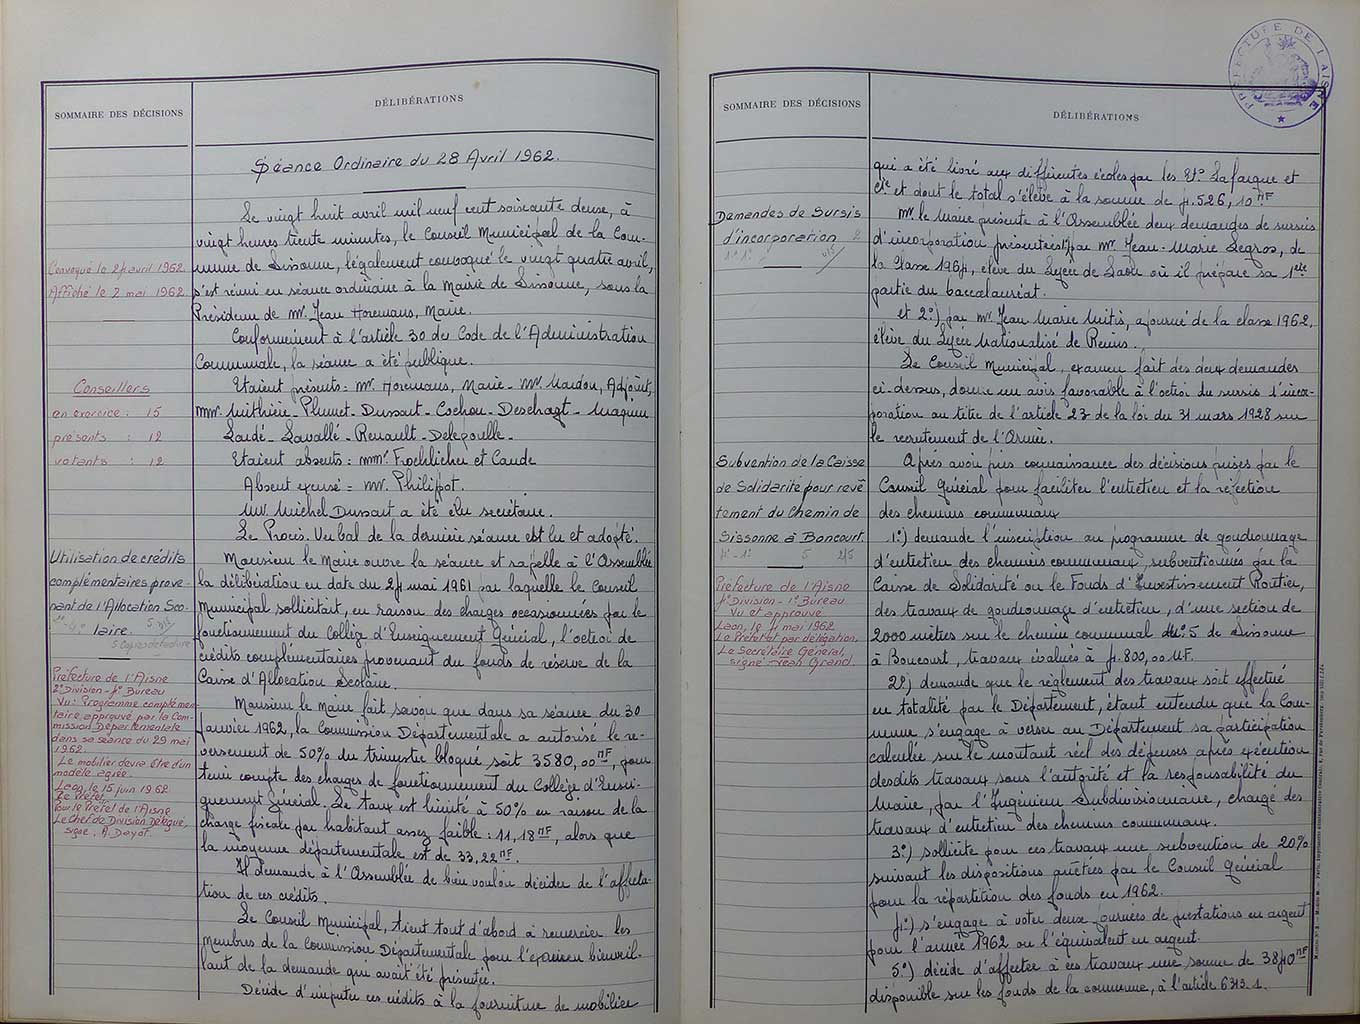 SOMMAIRE DES DÉCISIONS
DÉLIBÉRATIONS
Séance Ordinaire du 28 Avril 1962.
Le vingt huit avril mil neuf cent soixante deux, à
vingt heures trente minutes, le Conseil Municipal de la Com-
mune de Sissonne, légalement convoqué le vingt quatre avril,
s'est réuni en séance ordinaire à la Mairie de Sissonne, sous la
Présidence de Mr. Jean Horemans, Maire.
Convoqué le 24 avril 1962
Affiché le 2 mai 1962
Conformément à l'article 30 du Code de l'Administration
Communale, la séance a été publique.
Etaient présents = Mr. Horemans, Maire - Mr. Mardon, Adjoint,
MMrs. Mithière - Plumet - Dussart - Cochon - Deschagt - Maquin
Lardé - Lavallé - Renault - Delepouelle -
Etaient absents = MMrs. Froehlicher et Caude
Absent excusé = Mr. Philipot.
Mr. Michel Dussart a été élu secrétaire.
Le Procès-Verbal de la dernière séance est lu et adopté.
Conseillers
en exercice : 15
présents : 12
votants : 12
Utilisation de crédits
complémentaires prove-
nant de l'Allocation Sco-
laire.
Monsieur le Maire ouvre la séance et rapelle à l'Assemblée
la délibération en date du 24 mai 1961 par laquelle le Conseil
Municipal sollicitait, en raison des charges occasionnées par le
fonctionnement du Collège d'Enseignement Général, l'octroi de
crédits complémentaires provenant du fonds de réserve de la
Caisse d'Allocation Scolaire.
Monsieur le Maire fait savoir que dans sa séance du 30
Janvier 1962, la Commission Départementale a autorisé le re-
versement de 50% du trimestre bloqué soit 3580,00 NF, pour
tenir compte des charges de fonctionnement du Collège d'Ensei-
gnement Général. Le taux est limité à 50% en raison de la
charge fiscale par habitant assez faible : 11,18 NF, alors que
la moyenne départementale est de 33,22 NF.
Il demande à l'Assemblée de bien vouloir décider de l'affecta-
tion de ces crédits.
Le Conseil Municipal, tient tout d'abord à remercier les
membres de la Commission Départementale pour l'examen bienveil-
lant de la demande qui avait été présentée.
Décide d'imputer ces crédits à la fourniture de mobilier
5 copies de facture
Préfecture de l'Aisne
2° Division - 4° Bureau
Vu : Programme complémen-
taire approuvé par la Com-
mission Départementale
dans sa séance du 29 mai
1962.
Le mobilier devra être d'un
modèle agréé.
Laon, le 15 juin 1962
Le Préfet,
Pour le Préfet de l'Aisne
Le Chef de Division Délégué,
signé : A. Dayot.
SOMMAIRE DES DÉCISIONS
DÉLIBÉRATIONS
PRÉFECTURE DE L'AISNE
qui a été livré aux différentes écoles par les Ets. Lafarque et
Cie. et dont le total s'élève à la somme de 4.526,10 NF
Demandes de Sursis
d'incorporation
Mr. le Maire présente à l'Assemblée deux demandes de sursis
d'incorporation présentées 1°) par Mr. Jean-Marie Legros, de
la Classe 1964, élève du Lycée de Laon où il prépare sa 1ère
partie du baccalauréat.
et 2°) par Mr. Jean Marie Mitis, ajourné de la classe 1962,
élève du Lycée Nationalisé de Reims.
Le Conseil Municipal, examen fait des deux demandes
ci-dessus, donne un avis favorable à l'octroi du sursis d'incor-
poration au titre de l'article 23 de la loi du 31 mars 1928 sur
le recrutement de l'Armée.
Subvention de la Caisse
de Solidarité pour revê-
tement du Chemin de
Sissonne à Boncourt.
Après avoir pris connaissance des décisions prises par le
Conseil Général pour faciliter l'entretien et la réfection
des chemins communaux
1°) demande l'inscription au programme de goudronnage
d'entretien des chemins communaux, subventionnés par la
Caisse de Solidarité ou le Fonds d'Investissement Routier,
des travaux de goudronnage d'entretien, d'une section de
2000 mètres sur le chemin communal N°. 5 de Sissonne
à Boncourt, travaux évalués à 4.800,00 NF.
Préfecture de l'Aisne
4° Division - 1° Bureau
Vu et approuvé
Laon, le 11 mai 1962
Le Préfet et par délégation,
Le Secrétaire Général,
signé : Jean Grand.
2°) demande que le règlement des travaux soit effectué
en totalité par le Département, étant entendu que la Com-
mune s'engage à verser au Département sa participation
calculée sur le montant réel des dépenses après exécution
desdits travaux sous l'autorité et la responsabilité du
Maire, par l'Ingénieur Subdivisionnaire, chargé des
travaux d'entretien des chemins communaux.
3°) sollicite pour ces travaux une subvention de 20%
suivant les dispositions arrêtées par le Conseil Général
pour la répartition des fonds en 1962.
4°) s'engage à voter deux journées de prestations en argent
pour l'année 1962 ou l'équivalent en argent.
5°) décide d'affecter à ces travaux une somme de 3840 NF
disponible sur les fonds de la commune, à l'article 6313.1.